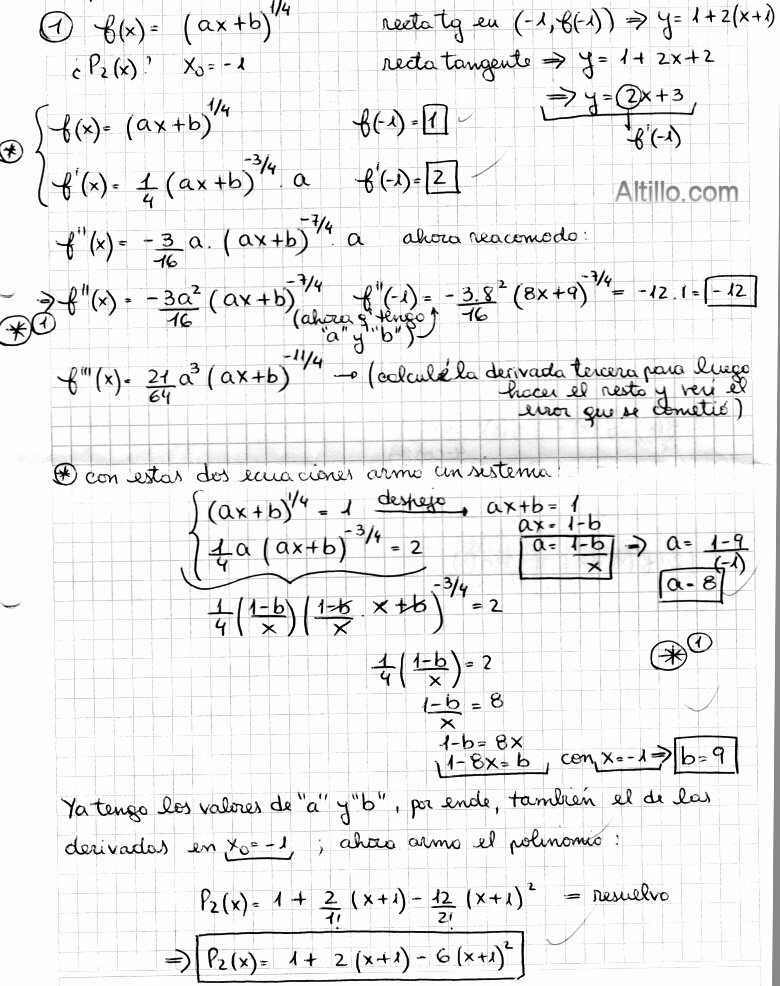 ① f(x) = (ax+b)^1/4 recta tg en (-1, f(-1)) ⇒ y = 1+2(x+1)
¿P₂(x)? x₀ = -1 recta tangente ⇒ y = 1 + 2x + 2
⇒ y = 2x + 3
f'(-1)
* f(x) = (ax+b)^1/4 f(-1) = 1
f'(x) = 1/4 (ax+b)^-3/4 . a f'(-1) = 2
Altillo.com
f''(x) = -3/16 a. (ax+b)^-7/4 . a ahora reacomodo:
⇒ f''(x) = -3a²/16 (ax+b)^-7/4 f''(-1) = -3.8²/16 (8x+9)^-7/4 = -12.1 = -12
*① (ahora q' tengo
"a" y "b")
f'''(x) = 21/64 a³ (ax+b)^-11/4 → (calculé la derivada tercera para luego
hacer el resto y ver el
error que se cometió)
* con estas dos ecuaciones armo un sistema:
(ax+b)^1/4 = 1 despejo → ax+b = 1
ax = 1-b
1/4 a (ax+b)^-3/4 = 2 a = 1-b/x ⇒ a = 1-9/(-1)
a = 8
1/4 (1-b/x) (1-b/x . x + b)^-3/4 = 2
1/4 (1-b/x) = 2 *①
1-b/x = 8
1-b = 8x
1-8x = b con x = -1 ⇒ b = 9
Ya tengo los valores de "a" y "b", por ende, también el de las
derivadas en x₀ = -1 ; ahora armo el polinomio:
P₂(x) = 1 + 2/1! (x+1) - 12/2! (x+1)² = resuelvo
⇒ P₂(x) = 1 + 2(x+1) - 6(x+1)²